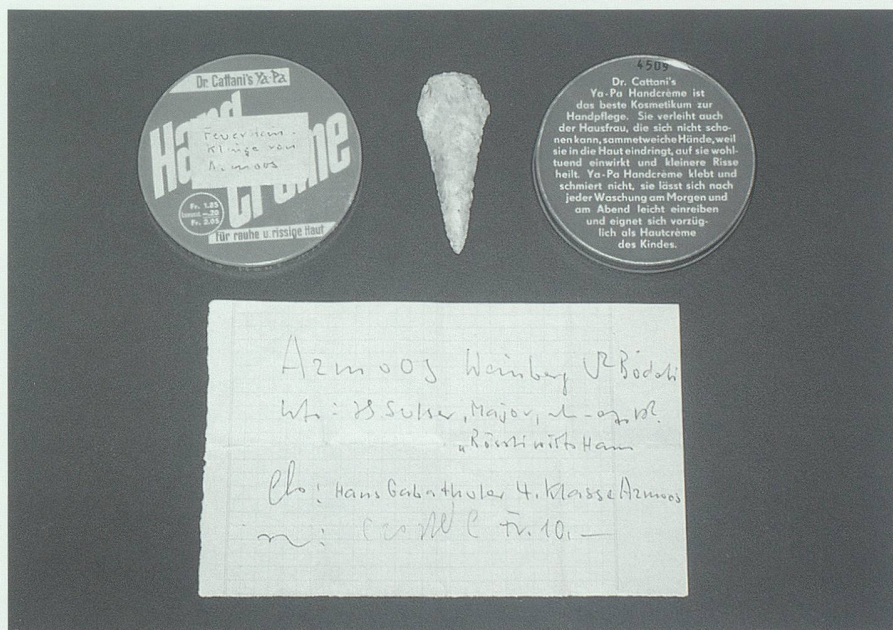 Dr. Cattani's Ya-Pa
Hand
Crème
Feuerstein-
Klinge von
Azmoos
Fr. 1.85
Fr. 2.05
für rauhe u. rissige Haut
4509
Dr. Cattani's
Ya-Pa Handcrème ist
das beste Kosmetikum zur
Handpflege. Sie verleiht auch
der Hausfrau, die sich nicht scho-
nen kann, sammetweiche Hände, weil
sie in die Haut eindringt, auf sie wohl-
tuend einwirkt und kleinere Risse
heilt. Ya-Pa Handcrème klebt und
schmiert nicht, sie lässt sich nach
jeder Waschung am Morgen und
am Abend leicht einreiben
und eignet sich vorzüg-
lich als Hautcrème
des Kindes.
Azmoos Weinberg
Sulser, Major,
Hans Gabathuler 4. Klasse Azmoos
Fr. 10.—